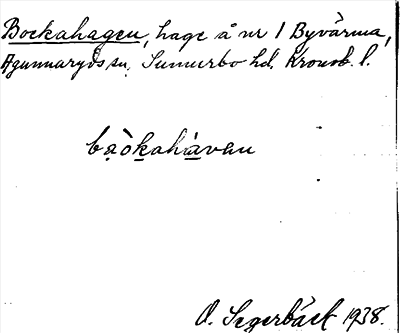 Bockahagen, hage å nr 1 Byvärma,
Agunnaryds sn, Sunnerbo hd. Kronob. l.
baòkahàvan
O. Segerbäck 1938.